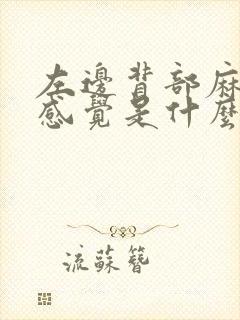 左邊背部麻
感覺是什麼
流蘇簪